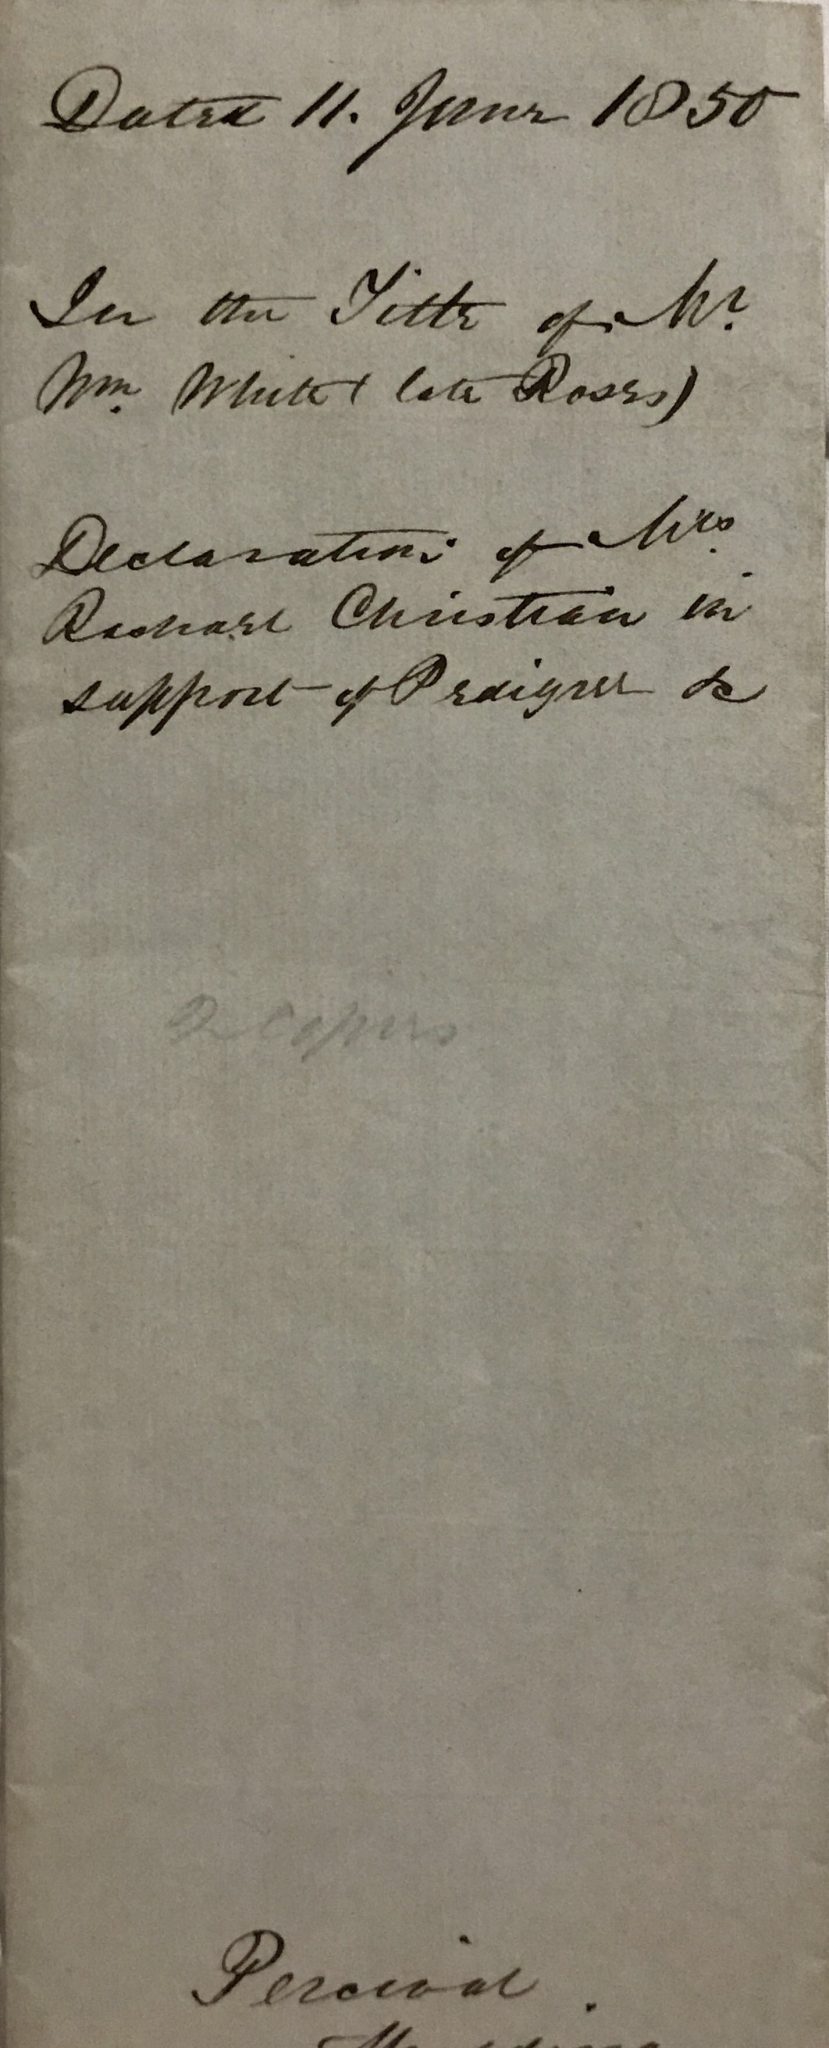 Dated 11. June 1850
In the Title of Mr.
Wm. White (late Roses)
Declaration of Mrs.
Rachael Christian in
support of Pedigree &c
2 Copies
Percival